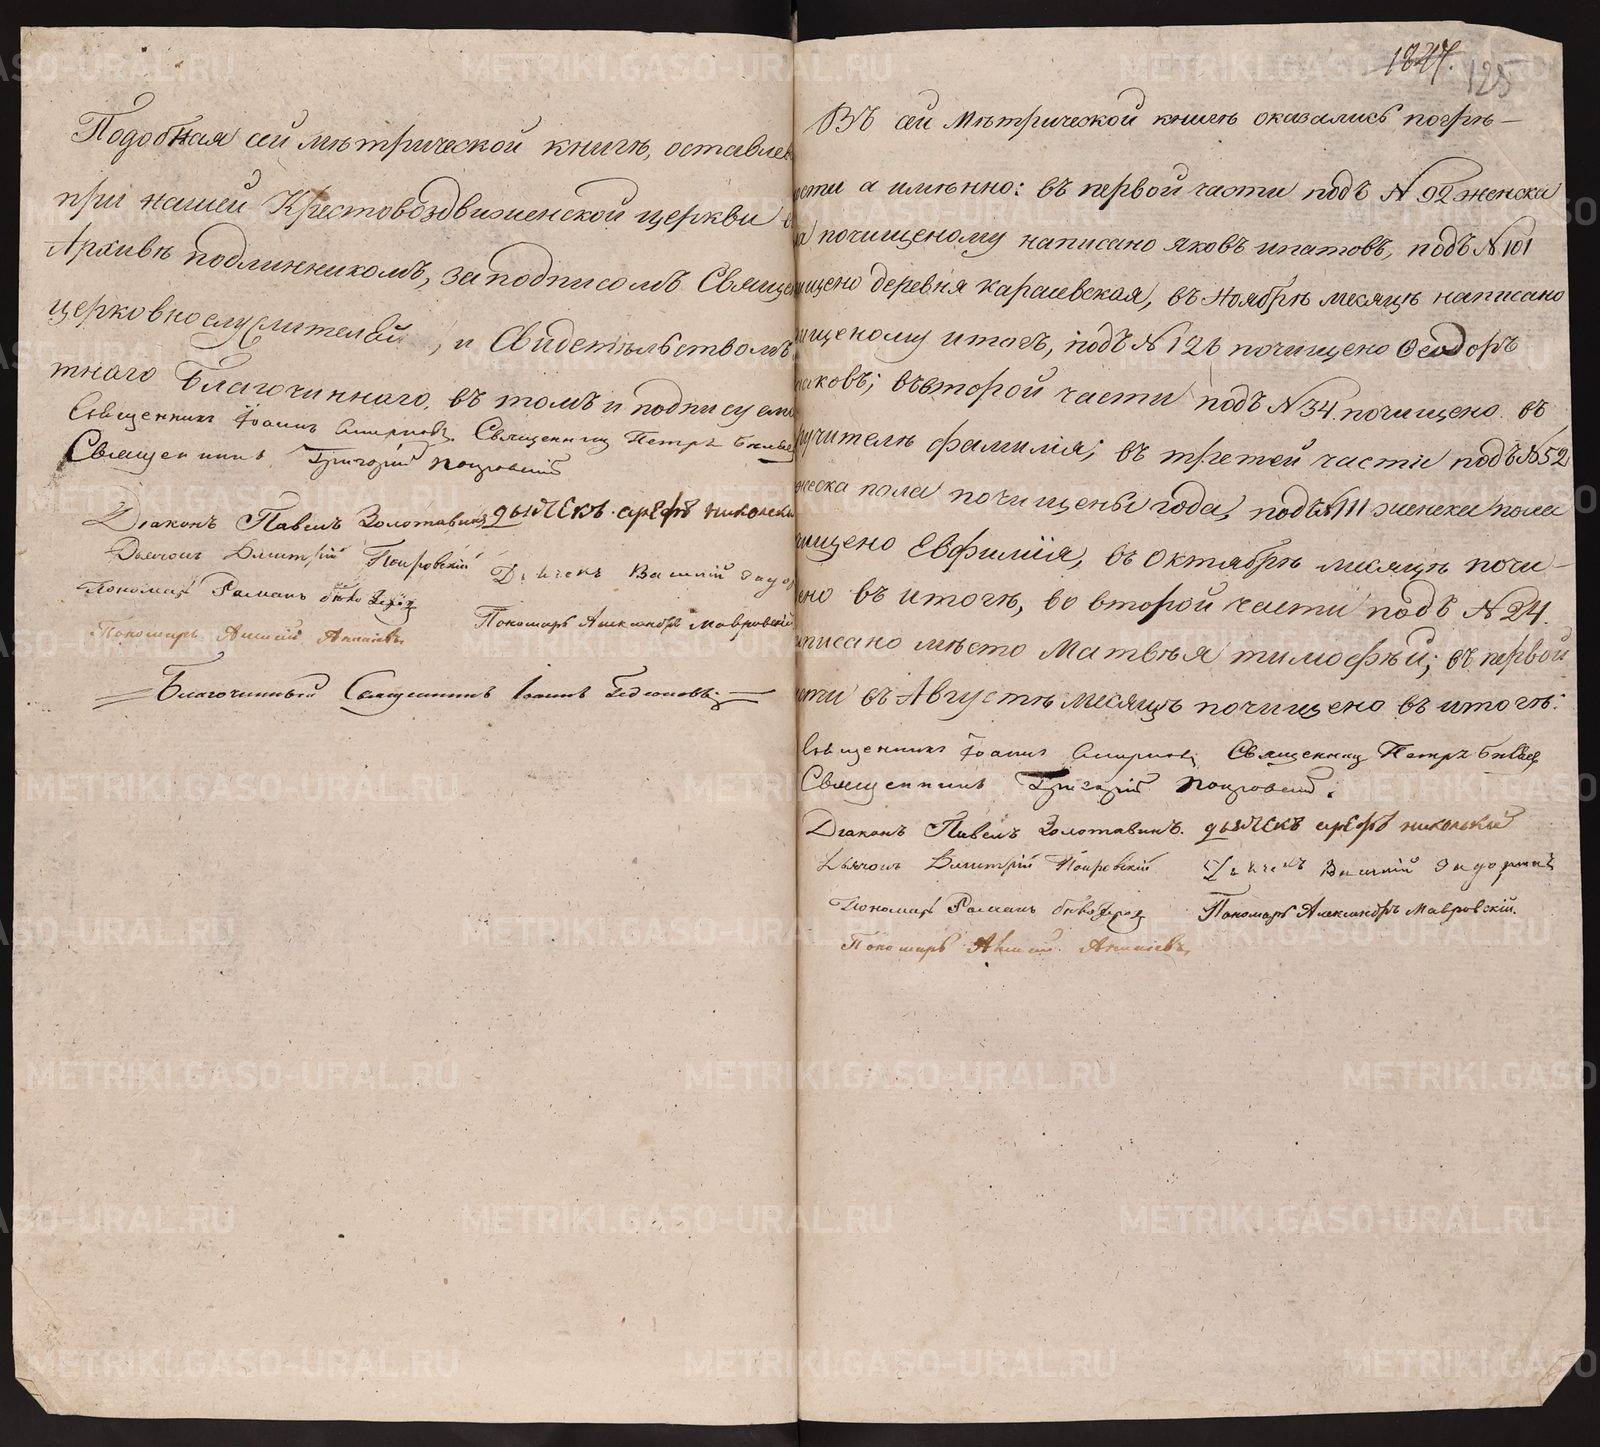 Подобная сей мѣтрической книгѣ, оставлен
при нашей Крестовоздвиженской церкви
Архивѣ подлинникомъ, за подписомъ Свяще
церковнослужителей, и Свидетѣльствомъ
тнаго Благочиннаго, въ томъ и подписуем
Священникъ Іоаннъ Смирновъ. Священникъ Петръ Бѣляев
Священникъ Григорій Покровскій
Діаконъ Павелъ Золотавинъ дьячекъ арефа никольски
Дьячокъ Димитрій Покровскій Дьячекъ Василій Задор
Пономарь Романъ Пономарь Александръ Мавровскій
Пономарь Алексѣй
Благочинный Священникъ Іоаннъ
1247. 125
Въ сей Мѣтрической книгѣ оказались погрѣ-
сти а имѣнно: въ первой части подъ № 92 женска
ла почищеному написано яковъ ипатовъ, подъ № 101
чищено деревня караевская, въ Ноябрѣ месяцѣ написано
чищеному итогъ, подъ № 126 почищено Ѳеодоръ
аковъ; въ второй части подъ № 34 почищено въ
ручителѣ фамилія; въ третей части подъ № 52
неска пола почищены года, подъ № 111 женска пола
чищено Евфимія, въ Октябрѣ месяцѣ почи-
ено въ итогѣ, во второй части подъ № 24.
аписано мѣсто Матвѣя тимофѣй; въ первой
сти въ Августѣ месяцѣ почищено въ итогѣ:
Священникъ Іоаннъ Смирновъ Священникъ Петръ Бѣляев
Священникъ Григорій Покровскій.
Діаконъ Павелъ Золотавинъ. дьячекъ арефа никольскій
Дьячокъ Димитрій Покровскій Дьячекъ Василій Задорин
Пономарь Романъ Пономарь Александръ Мавровскій.
Пономарь Алексѣй
METRIKI.GASO-URAL.RU